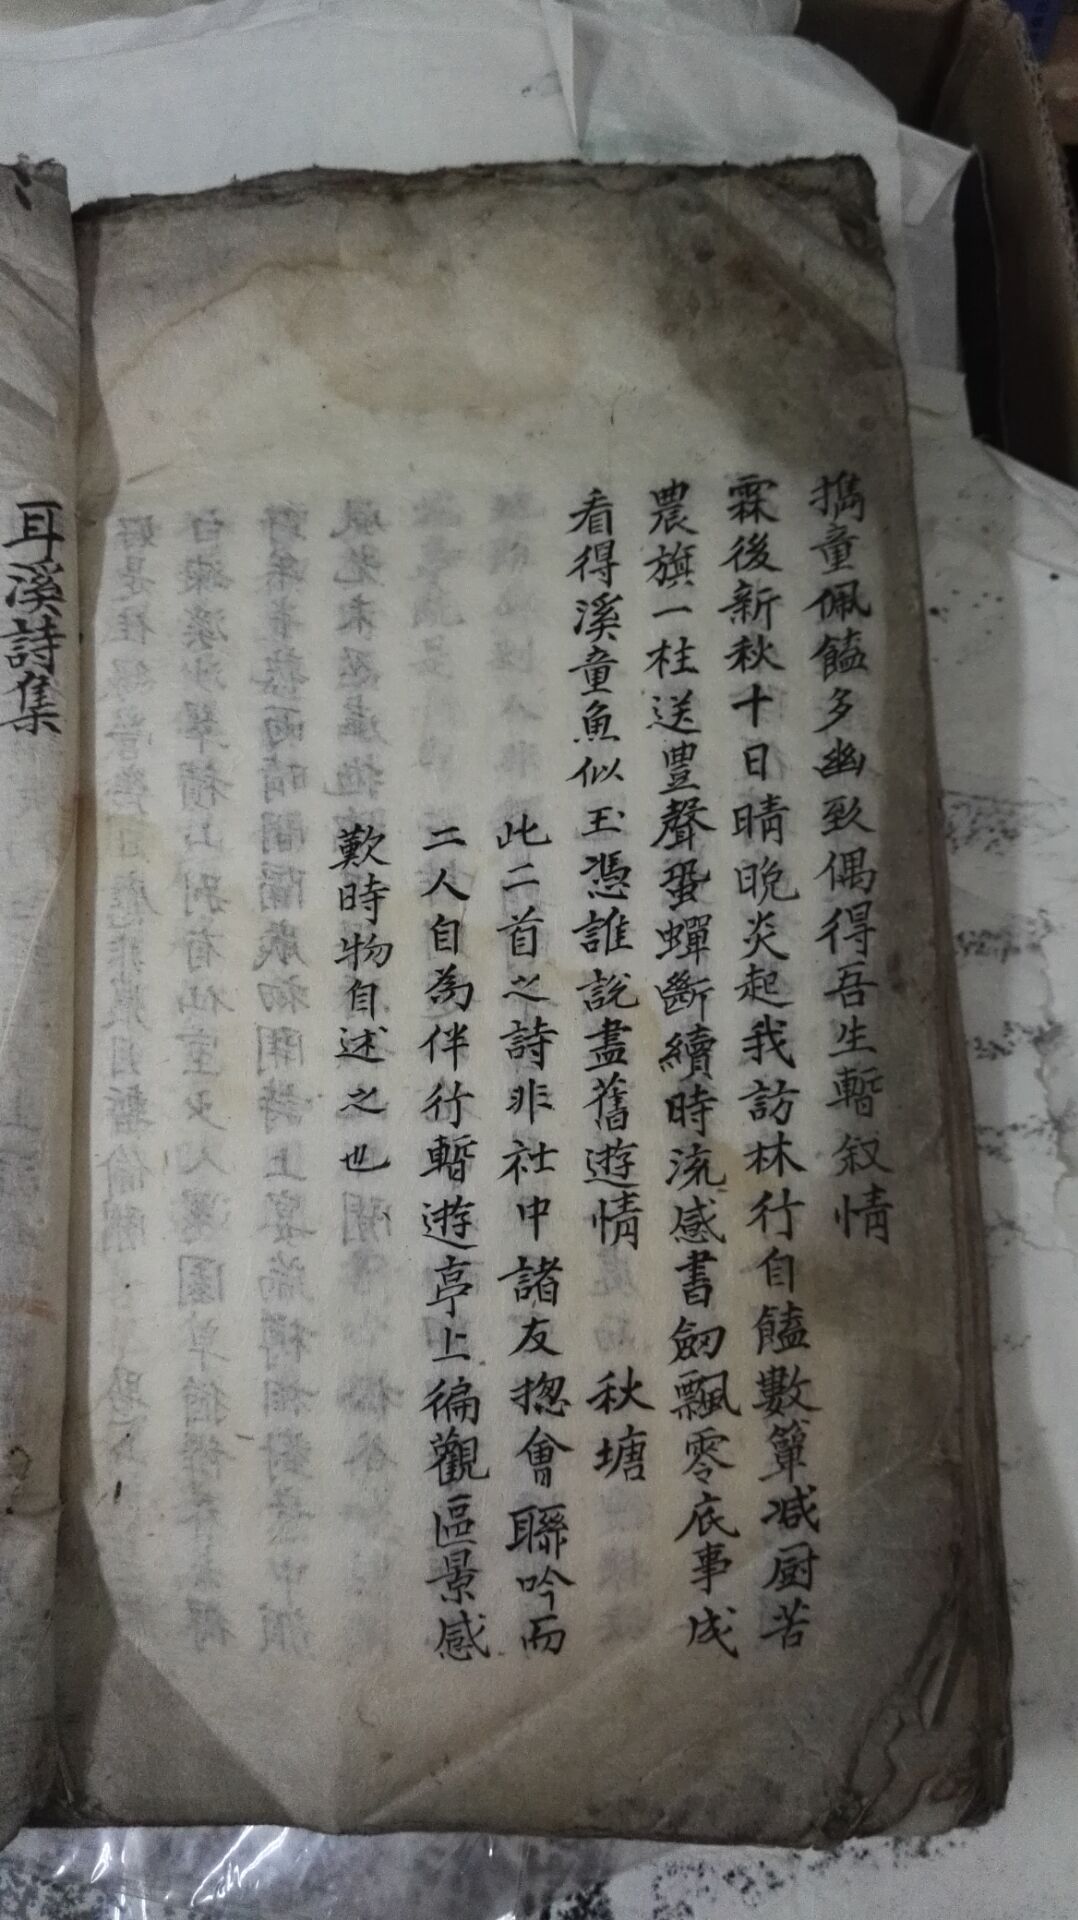 攜童佩饁多幽致偶得吾生暫叙情
霖後新秋十日晴晚炎起我訪林行自饁數簞减厨苦
農旗一柱送豊聲蛩蟬斷續時流感書劒飄零底事成
看得溪童魚似玉憑誰說盡舊遊情　秋塘
此二首之詩非社中諸友揔會聯吟而
二人自為伴行暫遊亭上徧觀區景感
歎時物自述之也
耳溪詩集